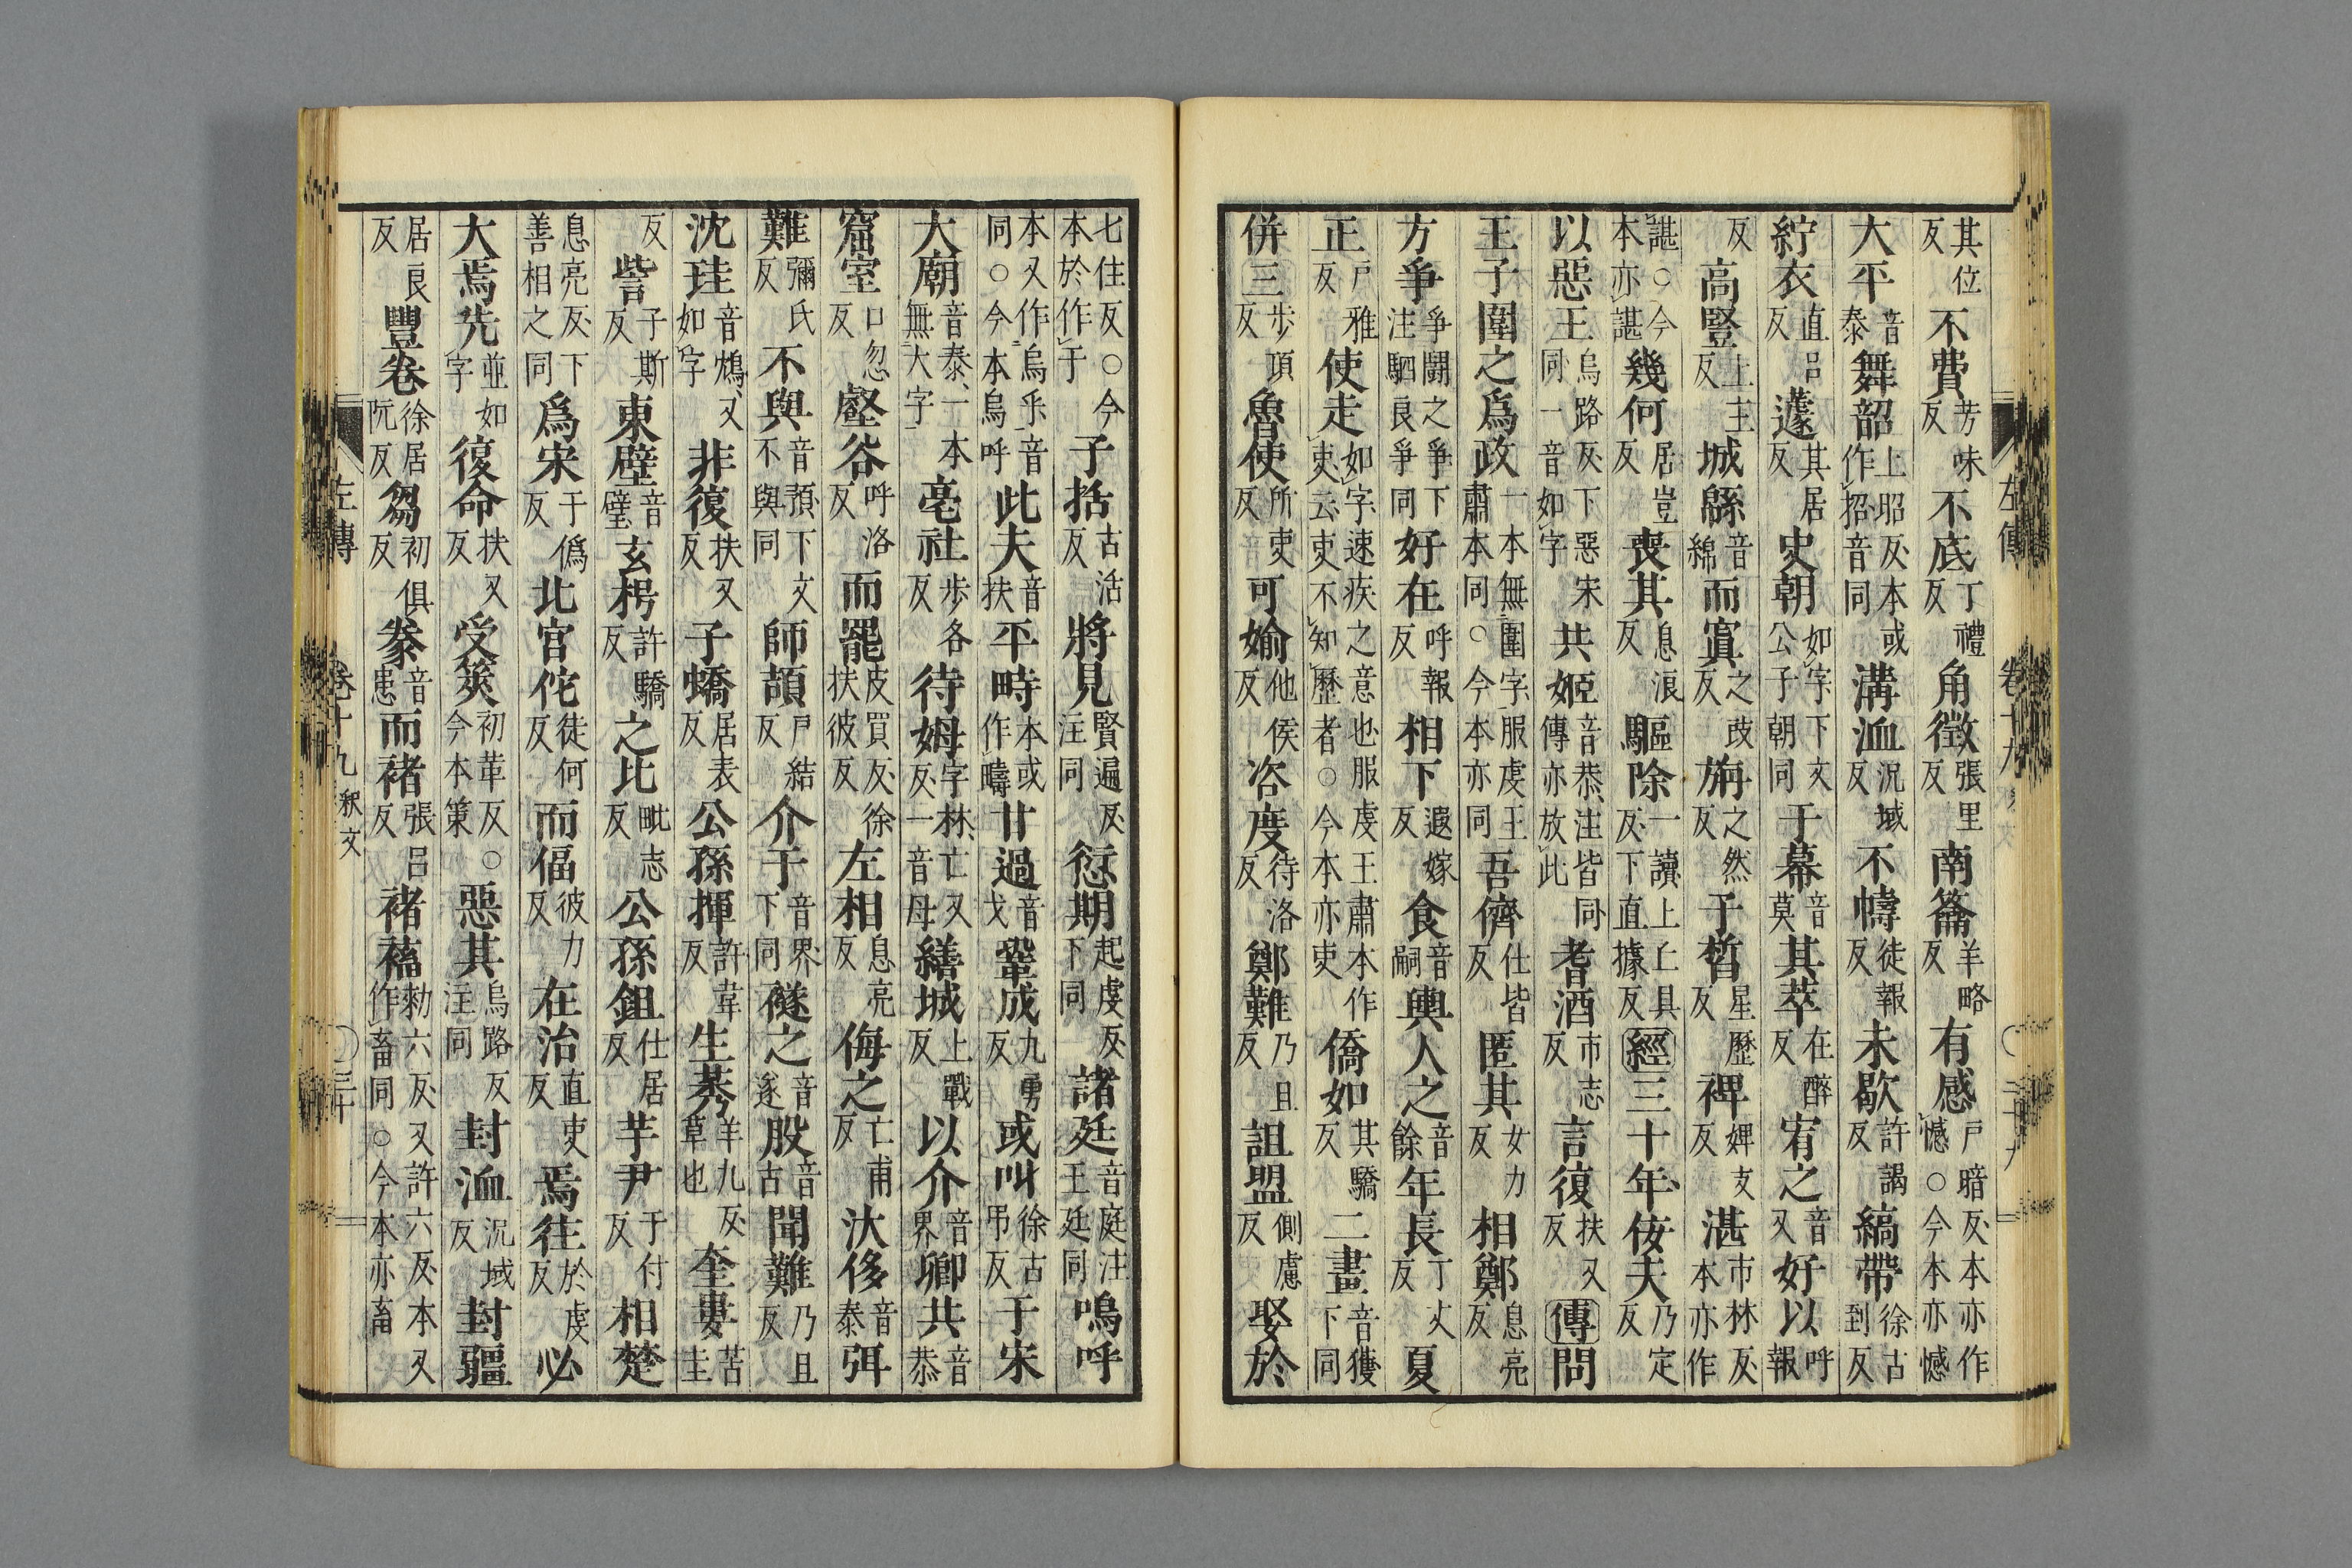 左傳 卷十九 釋文 二十九
其位反不費芳味反不底丁禮反角徵張里反南籥羊略反有感戶暗反本亦作憾○今本亦憾
大平音泰舞韶上昭反本或作招音同溝洫況域反不幬徒報反未歇許謁反縞帶徐古到反
紵衣直呂反蘧其居反史朝如字下文公子朝同于幕音莫其萃在醉反宥之音又好以呼報
反高豎上主反城緜音綿而寘之豉反旃之然反子皙星歷反裨婢支反湛市林反本亦作
諶○今本亦諶幾何居豈反喪其息浪反驅除一讀上丘具反下直據反經三十年佞夫乃定反
以惡王烏路反下惡宋同一音如字共姬音恭注皆同傳亦放此耆酒市志反言復扶又反傳問
王子圍之爲政一本無圍字服虔王肅本同○今本亦同吾儕仕皆反匿其女力反相鄭息亮反
方爭爭鬬之爭下注駟良爭同好在呼報反相下遐嫁反食音嗣輿人之音餘年長丁丈反夏
正戶雅反使走如字速疾之意也服虔王肅本作吏云吏不知歷者○今本亦吏僑如其驕反二畫音獲下同
併三步頂反魯使所吏反可婾他侯反咨度待洛反鄭難乃旦反詛盟側慮反娶於
七住反○今本於作于子括古活反將見賢遍反注同愆期起虔反下同諸廷音庭注王廷同嗚呼
本又作烏乎音同○今本烏呼此夫音扶平畤本或作疇甘過音戈鞏成九勇反或叫徐古弔反于宋
大廟音泰一本無大字亳社步各反待姆字林亡又反一音母繕城上戰反以介音界卿共音恭
窟室口忽反壑谷呼洛反而罷皮買反徐扶彼反左相息亮反侮之亡甫反汏侈音泰弭
難彌氏反不與音預下文不與同師頡戶結反介于音界下同襚之音遂股音古聞難乃旦反
沈珪音鴆又如字非復扶又反子蟜居表反公孫揮許韋反生莠羊九反草也奎婁苦圭
反訾子斯反東壁音璧玄枵許驕反之比毗志反公孫鉏仕居反芋尹于付反相楚
息亮反下善相之同爲宋于僞反北宮佗徒何反而偪彼力反在治直吏反焉往於虔反必
大焉先並如字復命扶又反受筴初革反○今本策惡其烏路反注同封洫況域反封疆
居良反豐卷徐居阮反芻初俱反豢音患而褚張呂反褚蓄勑六反又許六反本又作畜同○今本亦畜
左傳 卷十九 釋文 三十